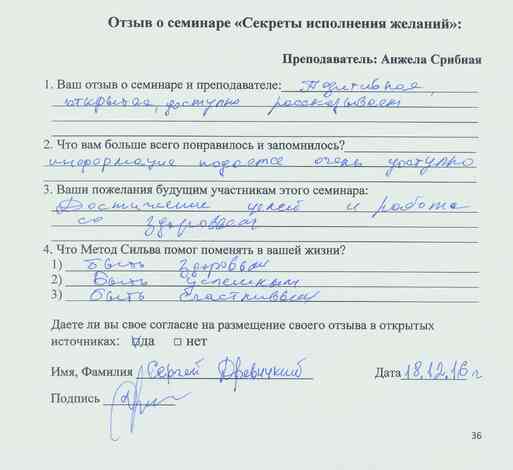 Отзыв о семинаре «Секреты исполнения желаний»:
Преподаватель: Анжела Срибная
1. Ваш отзыв о семинаре и преподавателе: Позитивная,
открытая, доступно рассказывает
2. Что вам больше всего понравилось и запомнилось?
информация подается очень доступно
3. Ваши пожелания будущим участникам этого семинара:
Достижение целей и работа
со здоровьем
4. Что Метод Сильва помог поменять в вашей жизни?
1) Быть здоровым
2) Быть успешным
3) быть счастливым
Даете ли вы свое согласие на размещение своего отзыва в открытых
источниках: да нет
Имя, Фамилия Сергей Древицкий Дата 18.12.16 г
Подпись
36